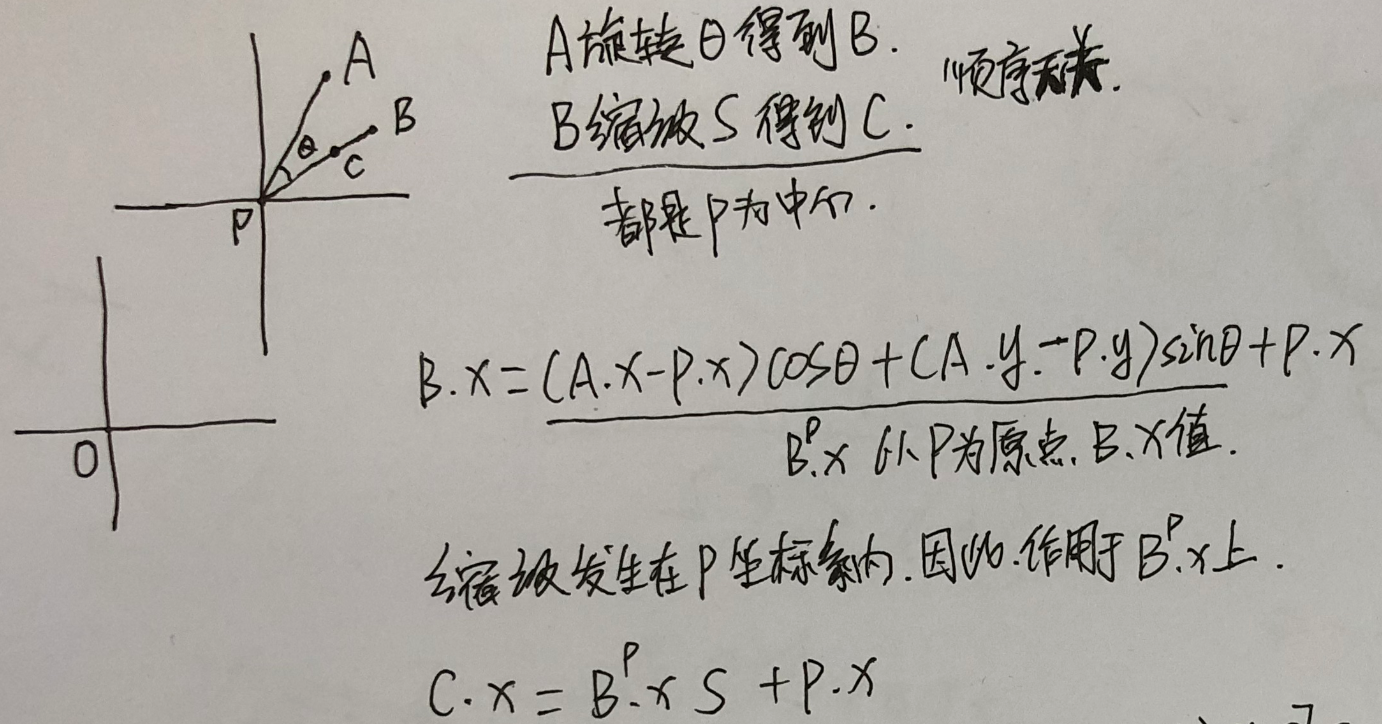 A
B
θ
C
P
O
A旋转θ得到B.
顺序无关.
B缩放S得到C.
都是P为中心.
B.x=(A.x-P.x)cosθ+(A.y-P.y)sinθ+P.x
Bᴾ.x 以P为原点.B.x值.
缩放发生在P坐标系内.因此.作用于Bᴾ.x上.
C.x=Bᴾ.x S+P.x